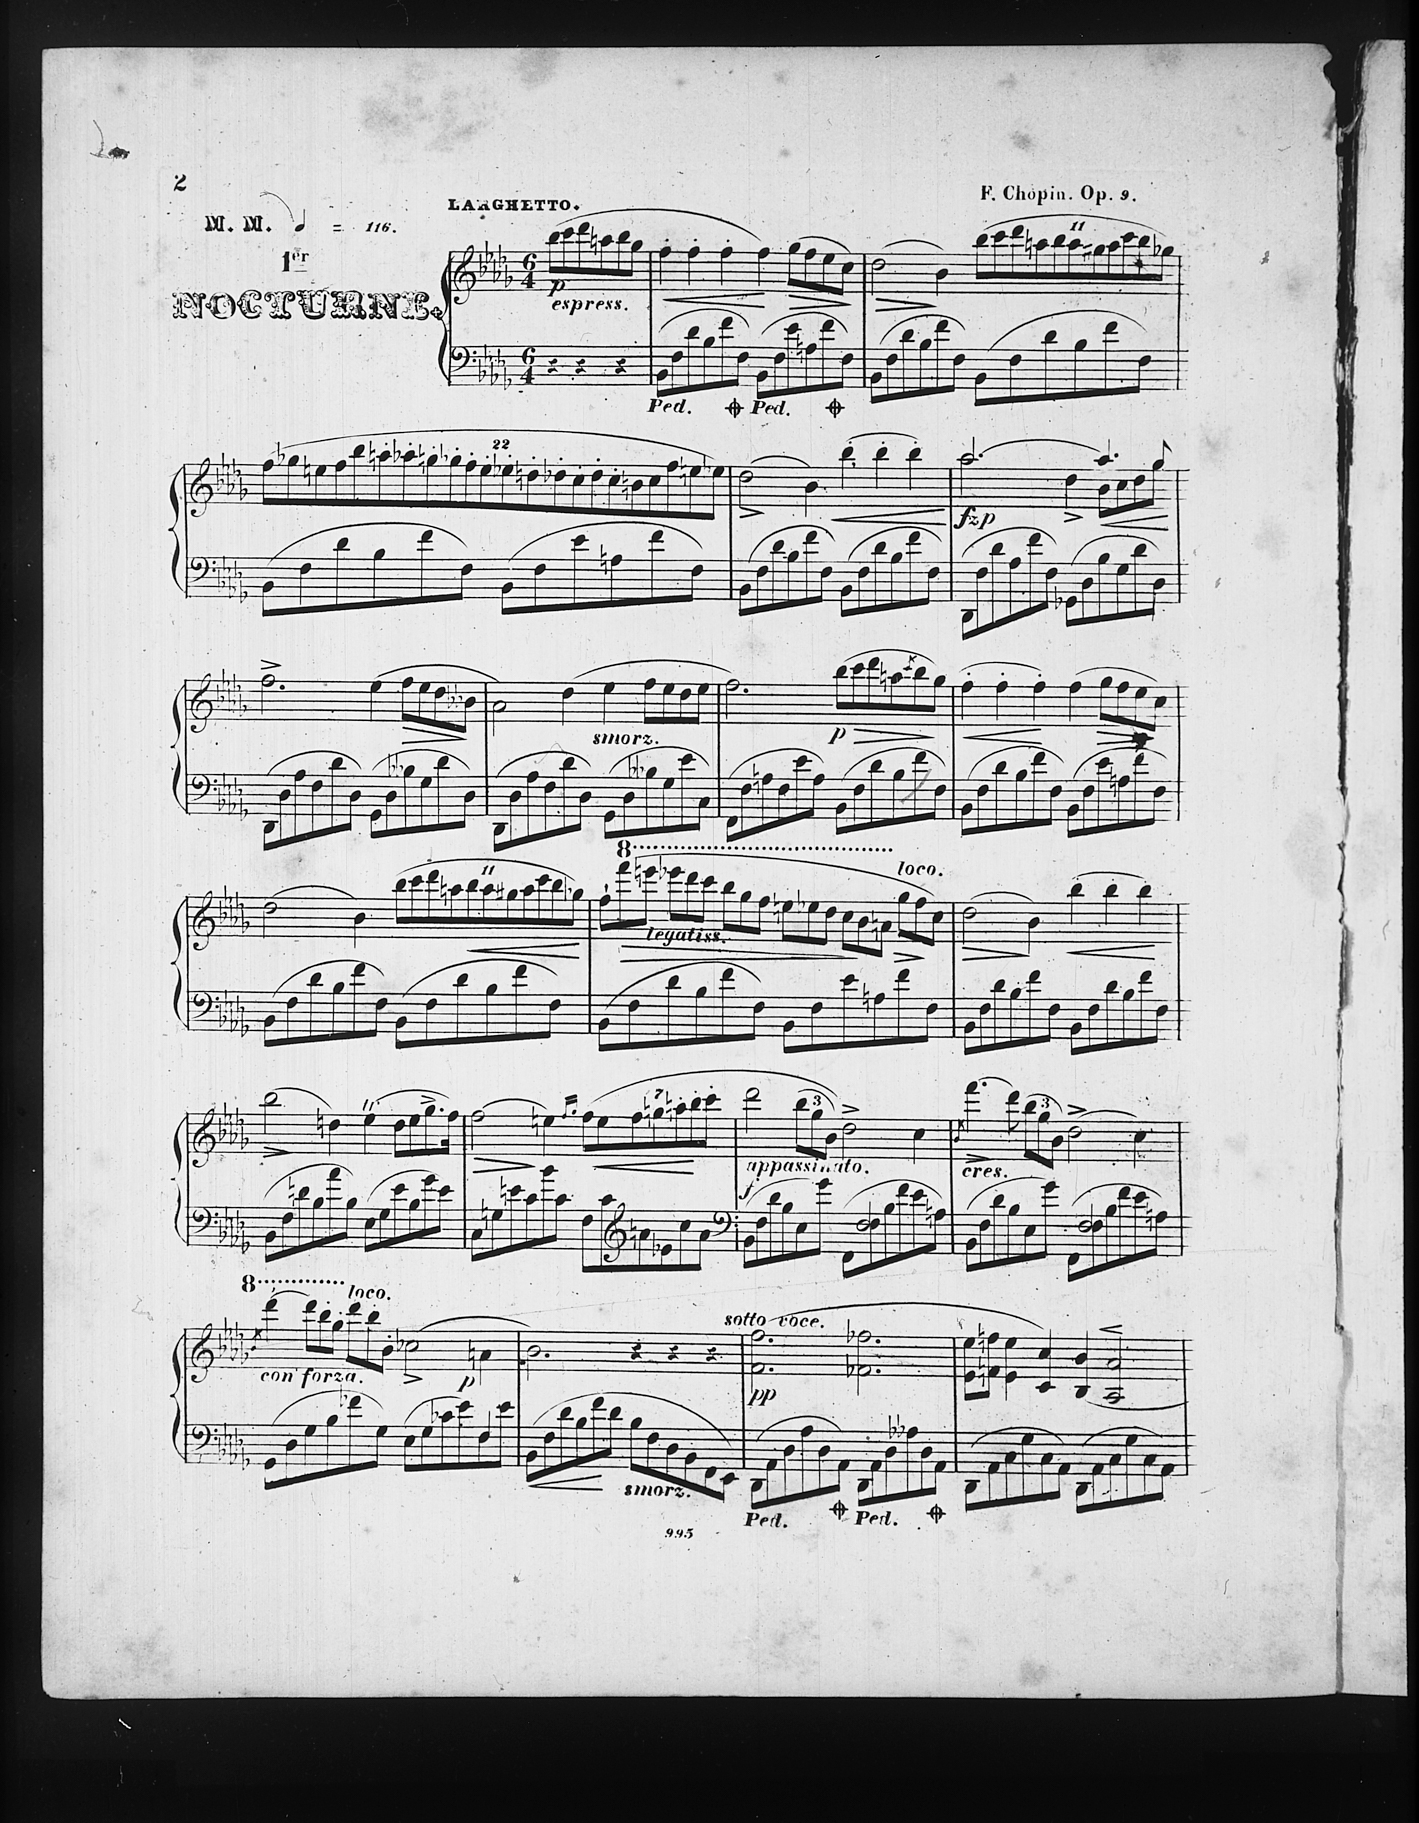 2
F. Chopin. Op. 9.
LARGHETTO.
M. M. = 116.
1er
NOCTURNE.
6 4
11
p
espress.
6 4
Ped. Ped.
22
fzp
smorz.
p
8 loco.
11
legatiss.
7
3 3
appassinato. cres.
f
8 loco.
sotto voce.
con forza. p
pp
smorz.
Ped. Ped.
995